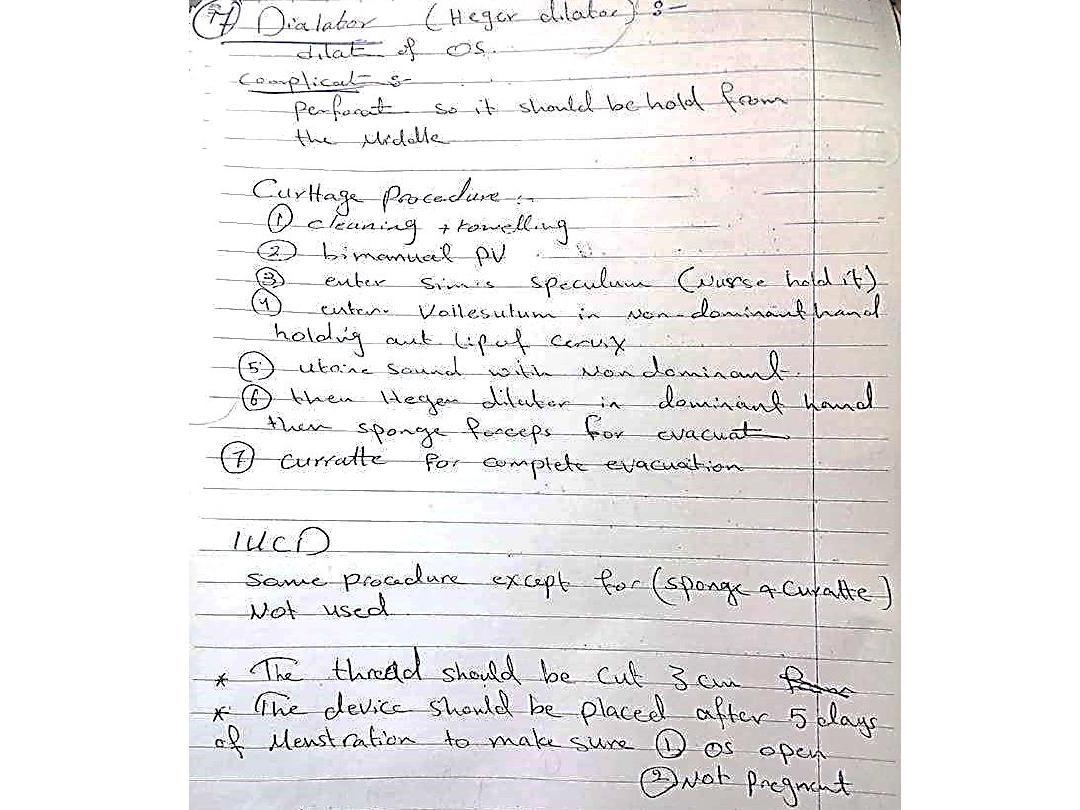 7 Dialator (Heger dilator) :-
dilat of OS.
Complicat :-
perforat so it should be hold from
the Middle
Curttage Procedure :-
① cleaning + towelling
② bimanual PV
③ enter Sim's speculum (Nurse hold it)
④ enter Vollesulum in Non-dominant hand
holding ant lip of cervix
⑤ utrine sound with Non dominant.
⑥ then Heger dilator in dominant hand
then sponge forceps for evacuat
⑦ curratte for complete evacuation
IUCD
Same procedure except for (sponge & Curatte)
Not used
* The thread should be cut 3 cm
* The device should be placed after 5 days
of Menstration to make sure ① OS open
② Not pregnant